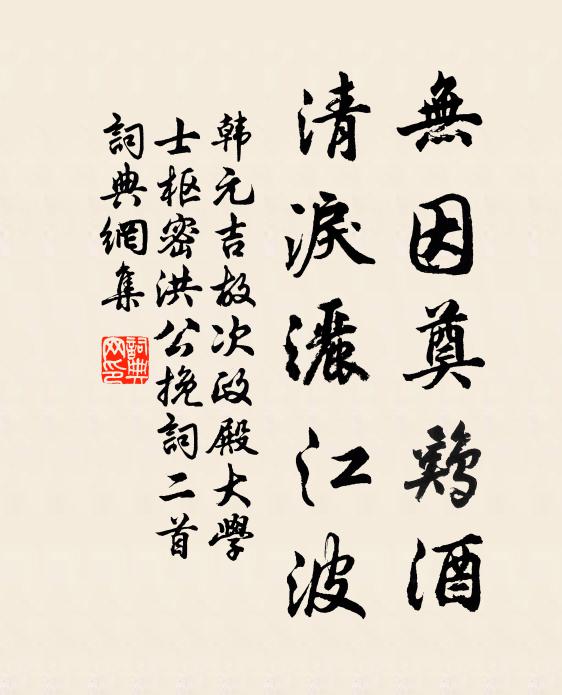 無因奠鷄酒
清淚灑江波
韩元吉故次政殿大學
士枢密洪公挽詞二首
詞典網集
詞典网印